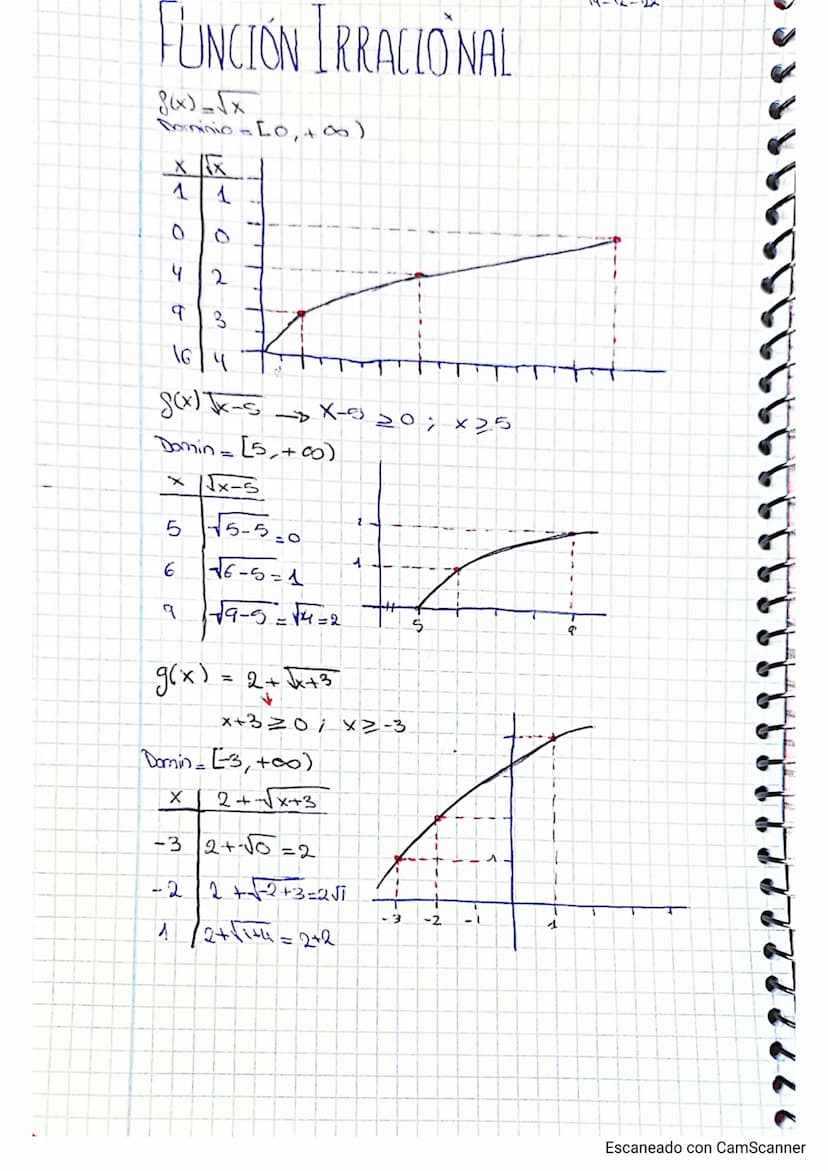 FUNCIÓN IRRACIONAL
f(x)=√x
Dominio = [0, +∞)
x | √x
1 | 1
0 | 0
4 | 2
9 | 3
16 | 4
f(x) √x-5 → x-5 ≥ 0 ; x ≥ 5
Domin = [5, +∞)
x | √x-5
5 | √5-5 = 0
6 | √6-5 = 1
9 | √9-5 = √4 = 2
2
1
5
9
g(x) = 2+√x+3
x+3 ≥ 0 ; x ≥ -3
Domin = [-3, +∞)
x | 2+√x+3
-3 | 2+√0 = 2
-2 | 2+√-2+3 = 2√1
1 | 2+√1+4 = 2+2
1
-3 -2 -1 1
Escaneado con CamScanner